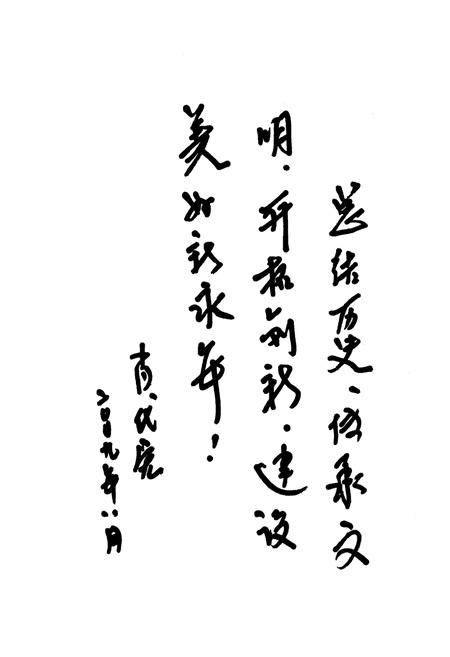 总结历史、传承文
明．开拓创新．建设
美好新永年！
肖代宪
二〇〇九年八月